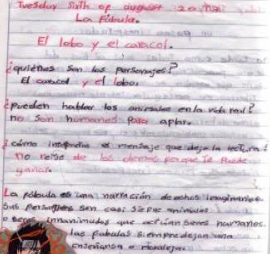 Tuesday Sixth of august 20
La Fábula.
El lobo y el caracol.
¿quiénes son los personajes?
El caracol y el lobo.
¿pueden hablar los animales en la vida real?
no son humanos para
¿cómo interpreta el mensaje que deja la lectura?
no reirse de los demas porque le Puede
ganar.
La fábula es una narración de echos imaginarios
sus personajes son casi siempre animales
o seres innanimados que actúan seres humanos
las fabulas siempre dejan una
enseñansa o moraleja